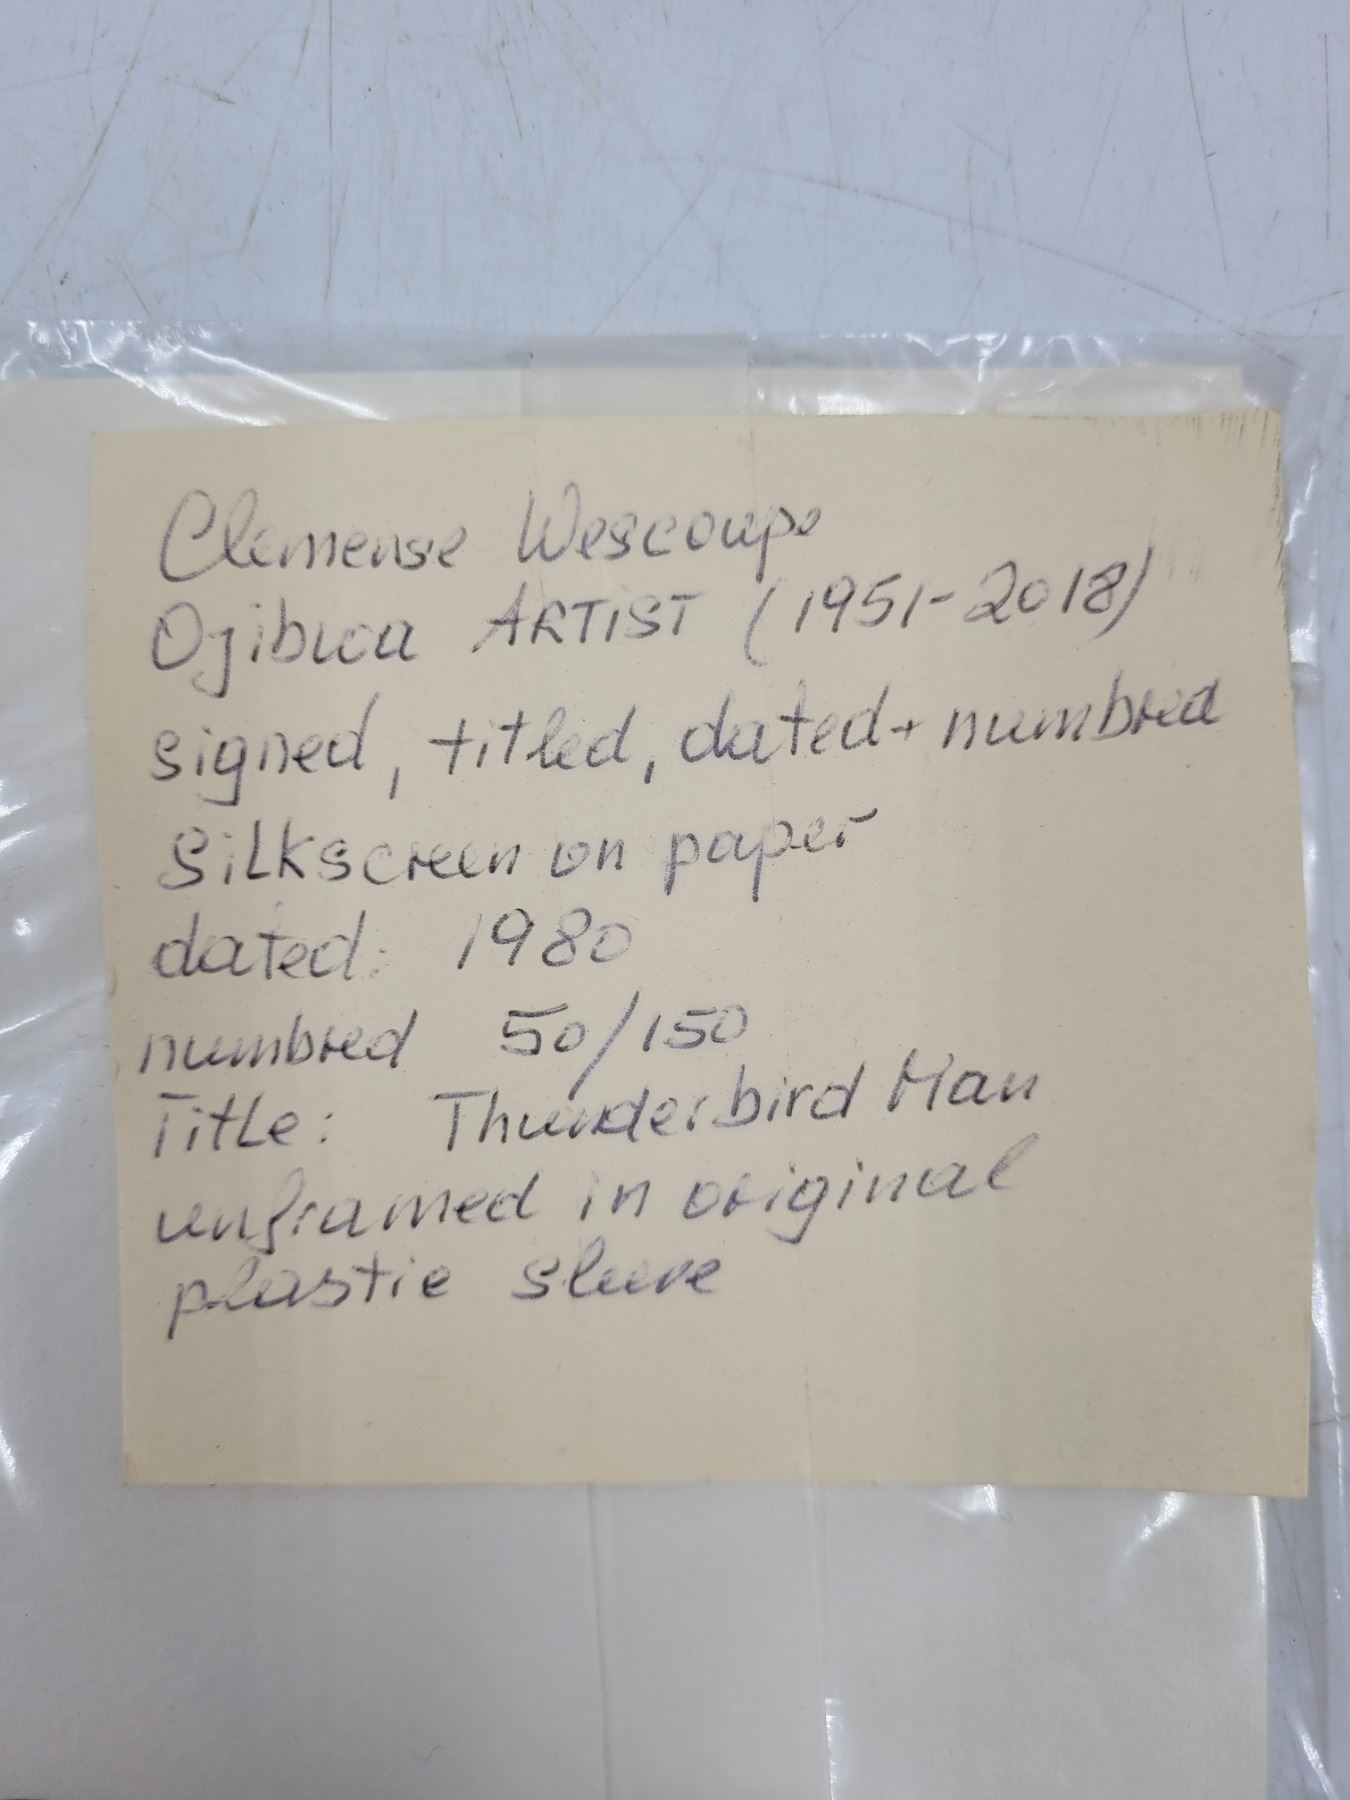 Clemense Wescoupe
Ojibwa ARTIST (1951-2018)
signed, titled, dated + numbred
SiLKscreen on paper
dated: 1980
numbred 50/150
TitLe: Thunderbird Man
unframed in original
plastic sleeve